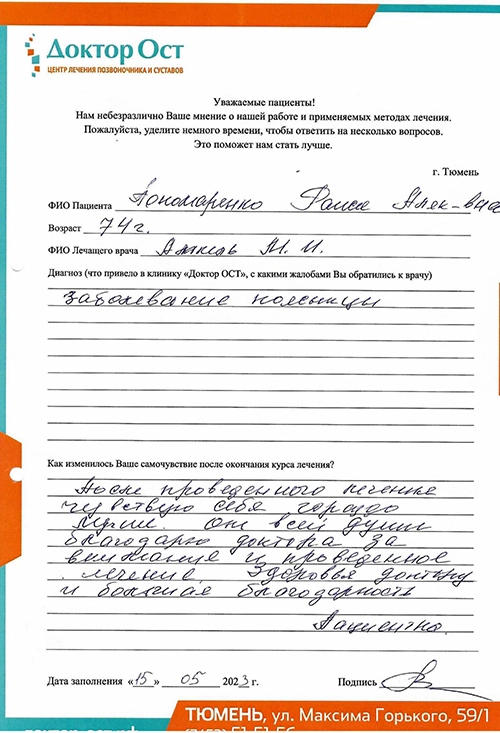 Доктор Ост
ЦЕНТР ЛЕЧЕНИЯ ПОЗВОНОЧНИКА И СУСТАВОВ
Уважаемые пациенты!
Нам небезразлично Ваше мнение о нашей работе и применяемых методах лечения.
Пожалуйста, уделите немного времени, чтобы ответить на несколько вопросов.
Это поможет нам стать лучше.
г. Тюмень
ФИО Пациента Пономаренко Раиса Алек-вна
Возраст 74 г.
ФИО Лечащего врача М. И.
Диагноз (что привело в клинику «Доктор ОСТ», с какими жалобами Вы обратились к врачу)
заболевание поясницы
Как изменилось Ваше самочувствие после окончания курса лечения?
После проведенного лечения
чувствую себя гораздо
лучше. От всей души
благодарю доктора за
внимание и проведенное
лечение. Здоровья доктору
и большая благодарность
Пациентка.
Дата заполнения «15» 05 2023 г. Подпись
ТЮМЕНЬ, ул. Максима Горького, 59/1